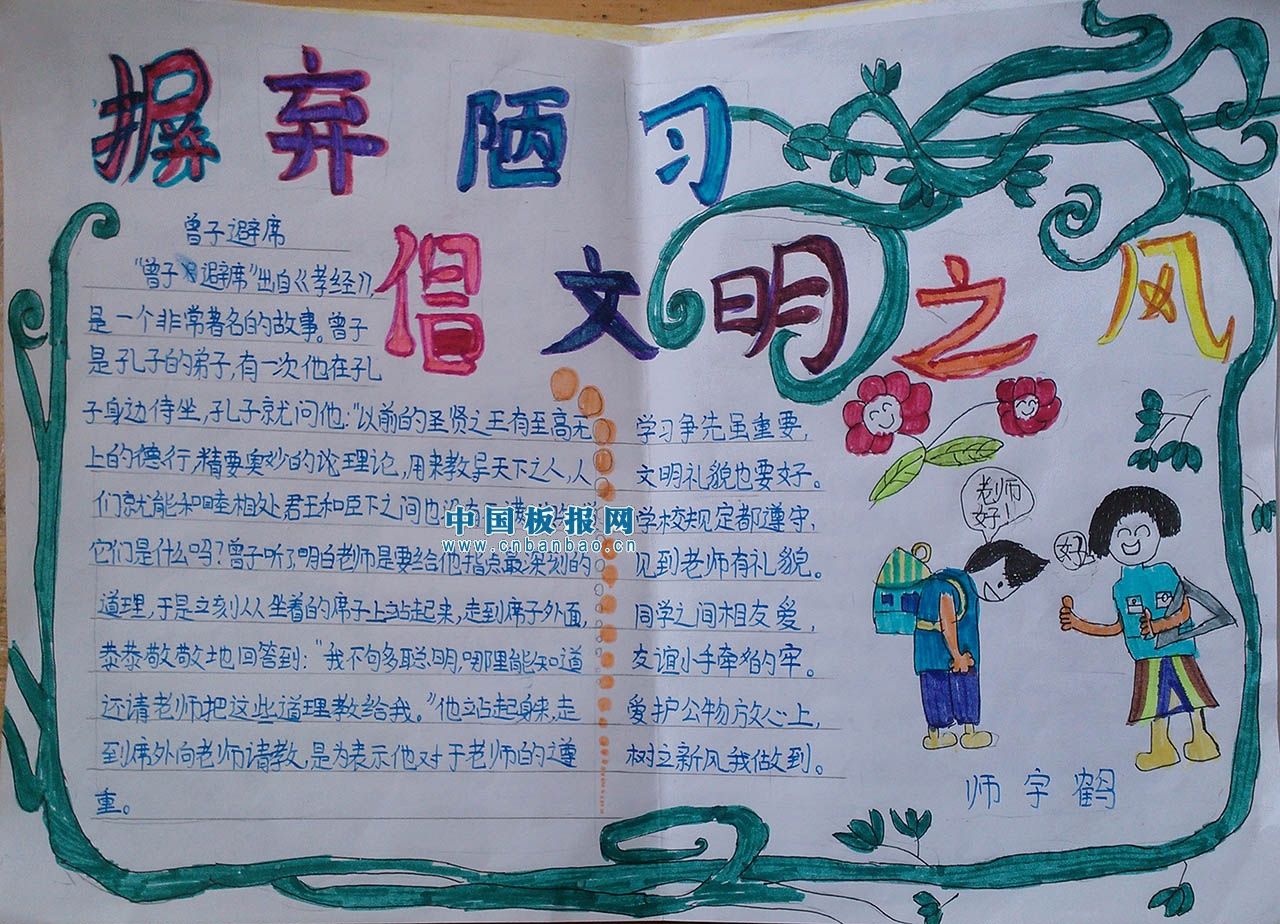 摒弃陋习
倡文明之风
曾子避席
"曾子避席"出自《孝经》,
是一个非常著名的故事。曾子
是孔子的弟子,有一次他在孔
子身边侍坐,孔子就问他:"以前的圣贤之王有至高无
上的德行,精要奥妙的论理论,用来教导天下之人,人
们就能和睦相处君王和臣下之间也没有
它们是什么吗?曾子听了,明白老师是要给他指点最深刻的
道理,于是立刻从从坐着的席子上站起来,走到席子外面,
恭恭敬敬地回答到:"我不够多聪明,哪里能知道
还请老师把这些道理教给我。"他站起身来,走
到席外向老师请教,是为表示他对于老师的遵
重。
学习争先虽重要,
文明礼貌也要好。
学校规定都遵守,
见到老师有礼貌。
同学之间相友爱,
友谊小手牵的牢。
爱护公物放心上,
树立新风我做到。
老师
好!
好
师字鹤
中国板报网
www.cnbanbao.cn